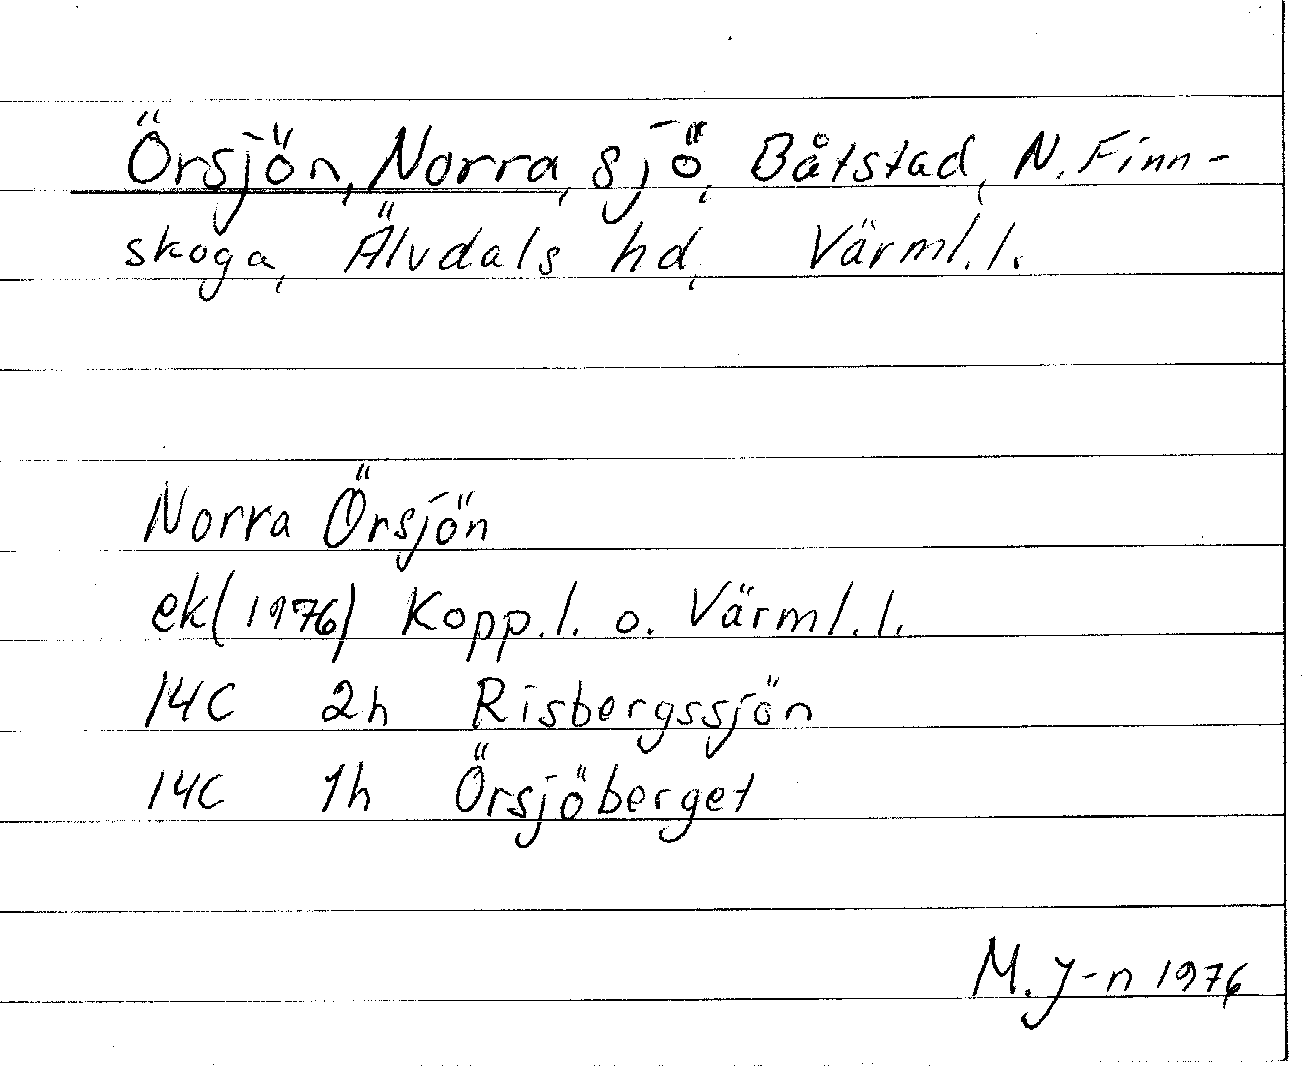 Örsjön, Norra, sjö, Båtstad, N. Finn-
skoga, Älvdals hd, Värml. l.
Norra Örsjön
ek(1976) Kopp. l. o. Värml. l.
14C 2h Risbergssjön
14C 1h Örsjöberget
M. J-n 1976